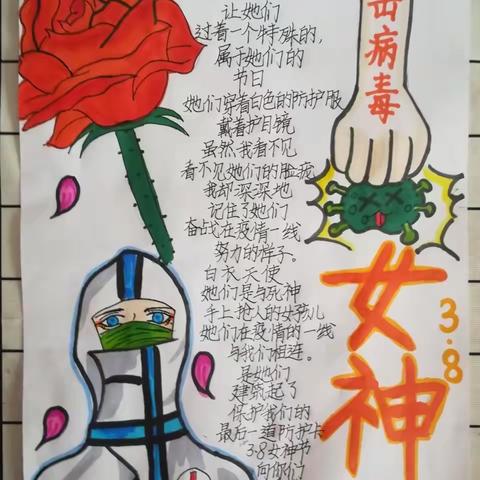 让她们
过着一个特殊的,
属于她们的
节日
她们穿着白色的防护服
戴着护目镜
虽然我看不见
看不见她们的脸庞
我却深深地
记住了她们
奋战在疫情一线
努力的样子。
白衣天使
她们是与死神
手上抢人的女孩儿
她们在疫情的一线
与我们相连。
是她们
建筑起了
保护我们的
最后一道防护卡
3.8女神节
向你们
击病毒
女神
3.8